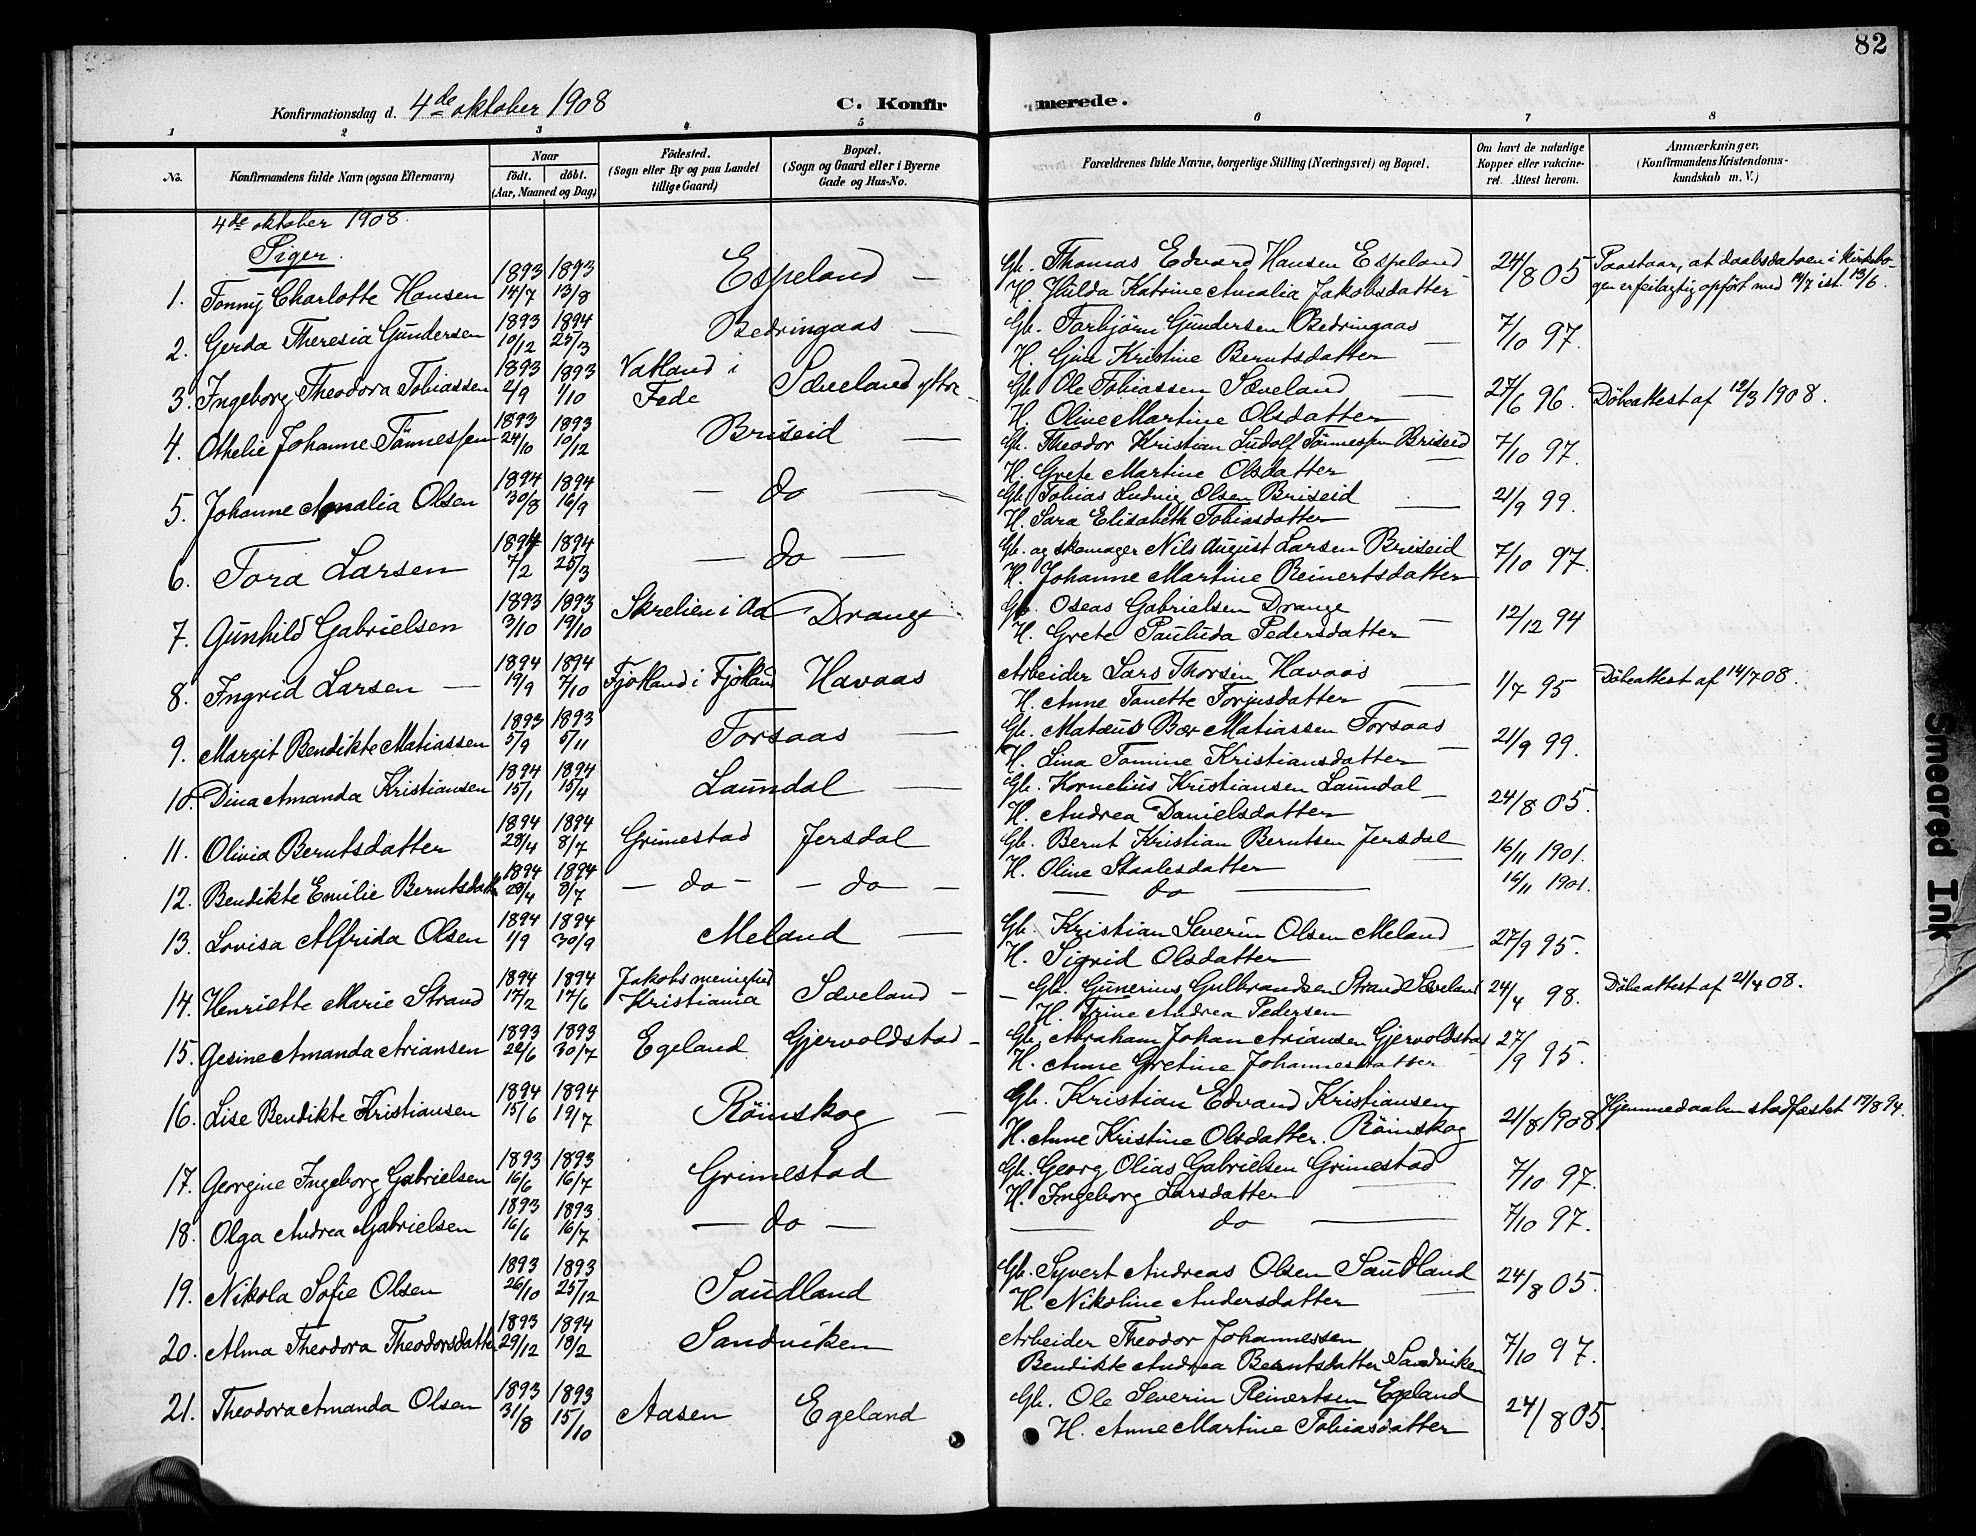 82
Konfirmationsdag d. 4de oktober 1908 C. Konfirmerede.
1 2 3 4 5 6 7 8
No. Konfirmandens fulde Navn (ogsaa Efternavn) Naar Födt. döbt. (Aar, Maaned og Dag) Födested. (Sogn eller By og paa Landet tillige Gaard) Bopæl. (Sogn og Gaard eller i Byerne Gade og Hus-No. Forældrenes fulde Navne, borgerlige Stilling (Næringsvei) og Bopæl. Om havt de naturlige Kopper eller vakcineret. Attest herom. Anmærkninger. (Konfirmandens Kristendomskundskab m. V.)
4de oktober 1908.
Piger.
1. Tonny Charlotte Hansen 1893 14/7 1893 13/8 Espeland — Gb. Thomas Edvard Hansen Espeland H. Hulda Katrine Amalia Jakobsdatter 24/8 05 Paastaar, at daabsdatoen i kirkebogen er feilagtig opfört med 14/7 ist. 13/6.
2. Gerda Theresia Gundersen 1893 10/12 1894 25/3 Bedringaas — Gb. Torbjörn Gundersen Bedringaas H. Gina Kristine Berntsdatter 7/10 97.
3. Ingeborg Theodora Tobiassen 1893 2/9 1893 1/10 Vatland i Fede Sæveland yttre Gb. Ole Tobiassen Sæveland H. Oline Martine Olsdatter 27/6 96. Döbeattest af 12/3 1908.
4. Othelie Johanne Tönnessen 1893 24/10 1893 10/12 Briseid — Gb. Theodor Kristian Ludolf Tönnessen Briseid H. Grete Martine Olsdatter 7/10 97.
5. Johanne Amalia Olsen 1894 30/8 1894 16/9 — do — Gb. Tobias Ludvig Olsen Briseid H. Sara Elisabeth Tobiasdatter 21/9 99.
6. Tora Larsen 1894 7/2 1894 25/3 — do — Gb. og skomager Nils August Larsen Briseid H. Johanne Martine Reinertsdatter 7/10 97.
7. Gunhild Gabrielsen 1893 3/10 1893 19/10 Skrelien i Aa Drange Gb. Oseas Gabrielsen Drange H. Grete Pauluda Pedersdatter 12/12 94
8. Ingrid Larsen — 1894 19/9 1894 7/10 Fjotland i Fjotland Havaas Arbeider Lars Thorsen Havaas H. Anne Tonette Torjusdatter 1/7 95 Döbeattest af 14/7 08.
9. Margit Bendikte Matiassen 1893 5/9 1893 5/11 Torsaas — Gb. Matæus Bær Matiassen Torsaas H. Lina Tomine Kristiansdatter 21/9 99.
10. Dina Amanda Kristiansen 1894 15/1 1894 15/4 Laundal — Gb. Kornelius Kristiansen Laundal H. Andrea Danielsdatter 24/8 05.
11. Olivia Berntsdatter 1894 28/4 1894 8/7 Grimestad Jersdal Gb. Bernt Kristian Berntsen Jersdal H. Oline Staalesdatter 16/11 1901.
12. Bendikte Emilie Berntsdatter 1894 28/4 1894 8/7 — do — — do — — do — 16/11 1901.
13. Lovisa Alfrida Olsen 1894 1/9 1894 30/9 Meland — Gb. Kristian Severin Olsen Meland H. Sigrid Olsdatter 27/9 95.
14. Henriette Marie Strand 1894 17/2 1894 17/6 Jakobs menighed Kristiania Sæveland — Gb. Gunerius Gulbrandsen Strand Sæveland H. Trine Andrea Pedersen 24/4 98. Döbeattest af 21/4 08.
15. Gesine Amanda Ariansen 1893 22/6 1893 30/7 Egeland Gjervoldstad — Gb. Abraham Johan Ariansen Gjervoldstad H. Anne Gretine Johannesdatter 27/9 95.
16. Lise Bendikte Kristiansen 1894 15/6 1894 19/7 Röinskog — Gb. Kristian Edvard Kristiansen H. Anne Kristine Olsdatter. Röinskog 21/8 1908 Hjemmedaaben stadfæstet 19/8 94.
17. Georgine Ingeborg Gabrielsen 1893 16/6 1893 16/7 Grimestad Gb. Georg Olias Gabrielsen Grimestad H. Ingeborg Larsdatter 7/10 97.
18. Olga Andrea Gabrielsen 1893 16/6 1893 16/7 — do — — do — 7/10 97.
19. Nikola Sofie Olsen 1893 26/10 1893 25/12 Saudland Gb. Syvert Andreas Olsen Saudland H. Nikoline Andersdatter 24/8 05.
20. Alma Theodora Theodorsdatter 1893 29/12 1894 18/2 Sandviken Arbeider Theodor Johannessen Bendikte Andrea Berntsdatter Sandviken 7/10 97.
21. Theodora Amanda Olsen 1893 31/8 1893 15/10 Aasen Egeland Gb. Ole Severin Reinertsen Egeland H. Anne Martine Tobiasdatter 24/8 05.
Smeared Ink